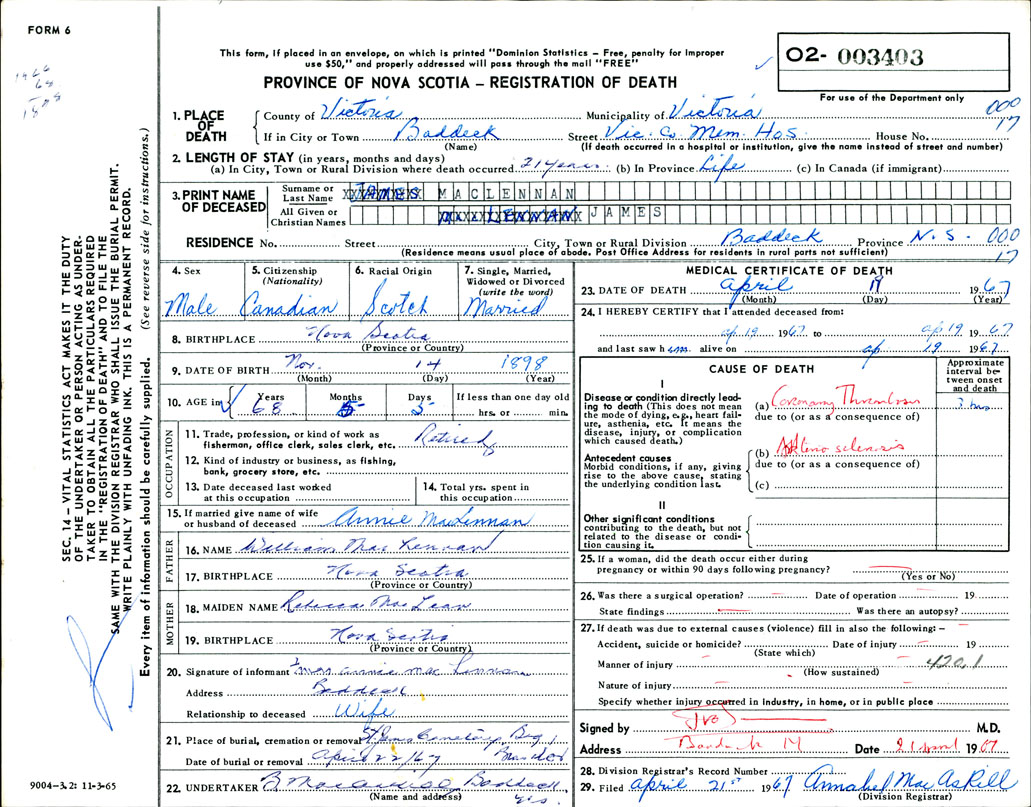 FORM 6
1966
68
1898
This form, if placed in an envelope, on which is printed "Dominion Statistics – Free, penalty for improper
use $50," and properly addressed will pass through the mail "FREE"
02- 003403
For use of the Department only
PROVINCE OF NOVA SCOTIA – REGISTRATION OF DEATH
1. PLACE OF DEATH
County of Victoria Municipality of Victoria 000
17
If in City or Town Baddeck Street Vic. Co. Mem. Hos. House No.
(Name) (If death occurred in a hospital or institution, give the name instead of street and number)
2. LENGTH OF STAY (in years, months and days)
(a) In City, Town or Rural Division where death occurred 21 years (b) In Province Life (c) In Canada (if immigrant)
3. PRINT NAME OF DECEASED
Surname or Last Name JAMES MACLENNAN
All Given or Christian Names LENNAN JAMES
RESIDENCE No. Street City, Town or Rural Division Baddeck Province N.S. 000
17
(Residence means usual place of abode. Post Office Address for residents in rural parts not sufficient)
4. Sex Male
5. Citizenship (Nationality) Canadian
6. Racial Origin Scotch
7. Single, Married, Widowed or Divorced (write the word) Married
8. BIRTHPLACE Nova Scotia
(Province or Country)
9. DATE OF BIRTH Nov. 14 1898
(Month) (Day) (Year)
10. AGE in Years 68 Months 5 Days 5 If less than one day old
hrs. or min.
OCCUPATION
11. Trade, profession, or kind of work as
fisherman, office clerk, sales clerk, etc. Retired
12. Kind of industry or business, as fishing,
bank, grocery store, etc.
13. Date deceased last worked
at this occupation
14. Total yrs. spent in
this occupation
15. If married give name of wife
or husband of deceased Annie MacLennan
FATHER
16. NAME William MacLennan
17. BIRTHPLACE Nova Scotia
(Province or Country)
MOTHER
18. MAIDEN NAME Rebecca MacLean
19. BIRTHPLACE Nova Scotia
(Province or Country)
20. Signature of informant Mrs Annie MacLennan
Address Baddeck
Relationship to deceased Wife
21. Place of burial, cremation or removal Cemetery
Date of burial or removal April 22/67
22. UNDERTAKER Baddeck
(Name and address) N.S.
MEDICAL CERTIFICATE OF DEATH
23. DATE OF DEATH April 19 1967
(Month) (Day) (Year)
24. I HEREBY CERTIFY that I attended deceased from:
ap 19 1967 to ap 19 1967
and last saw him alive on ap 19 1967
CAUSE OF DEATH
Approximate interval between onset and death
I
Disease or condition directly leading to death (This does not mean the mode of dying, e.g., heart failure, asthenia, etc. It means the disease, injury, or complication which caused death.)
(a) Coronary Thrombosis 3 hrs
due to (or as a consequence of)
Antecedent causes
Morbid conditions, if any, giving rise to the above cause, stating the underlying condition last.
(b)
due to (or as a consequence of)
(c)
II
Other significant conditions
contributing to the death, but not related to the disease or condition causing it.
25. If a woman, did the death occur either during
pregnancy or within 90 days following pregnancy?
(Yes or No)
26. Was there a surgical operation? Date of operation 19
State findings Was there an autopsy?
27. If death was due to external causes (violence) fill in also the following: –
Accident, suicide or homicide? Date of injury 19
(State which)
Manner of injury 4201
(How sustained)
Nature of injury
Specify whether injury occurred in industry, in home, or in public place
Signed by M.D.
Address Date 21 April 1967
28. Division Registrar's Record Number
29. Filed April 21st 1967 Annabel MacAskill
(Division Registrar)
SEC. 14 – VITAL STATISTICS ACT MAKES IT THE DUTY
OF THE UNDERTAKER OR PERSON ACTING AS UNDER-
TAKER TO OBTAIN ALL THE PARTICULARS REQUIRED
IN THE "REGISTRATION OF DEATH" AND TO FILE THE
SAME WITH THE DIVISION REGISTRAR WHO SHALL ISSUE THE BURIAL PERMIT.
WRITE PLAINLY WITH UNFADING INK. THIS IS A PERMANENT RECORD.
Every item of information should be carefully supplied. (See reverse side for instructions.)
9004-3.2: 11-3-65